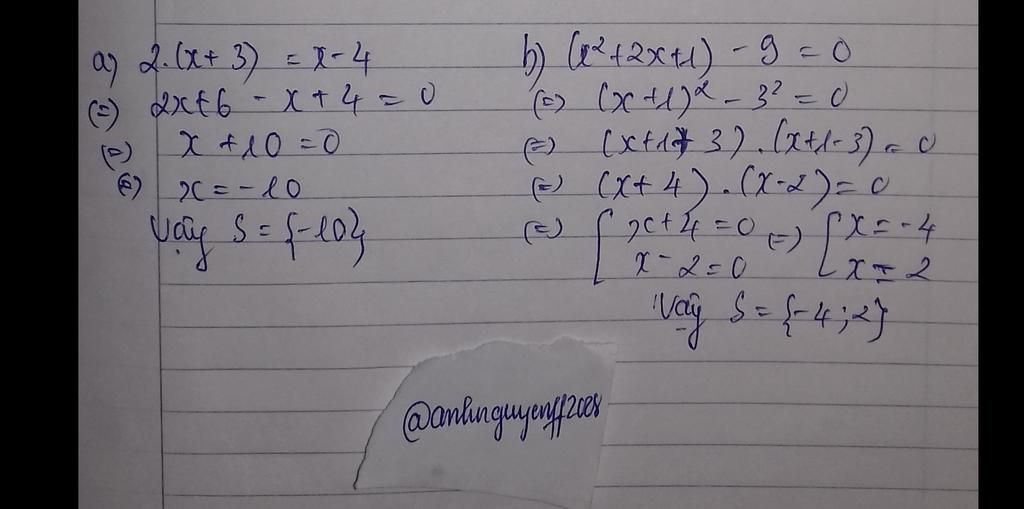 a) 2.(x+3) = x-4
(=) 2x+6 - x + 4 = 0
(=) x + 10 = 0
(=) x = -10
Vậy S = {-10}
b) (x²+2x+1) - 9 = 0
(=) (x+1)² - 3² = 0
(=) (x+1+3).(x+1-3) = 0
(=) (x+4).(x-2) = 0
(=) [x+4=0 (=) [x=-4
x-2=0 x=2
Vậy S = {-4;2}
@anhnguyenff2008